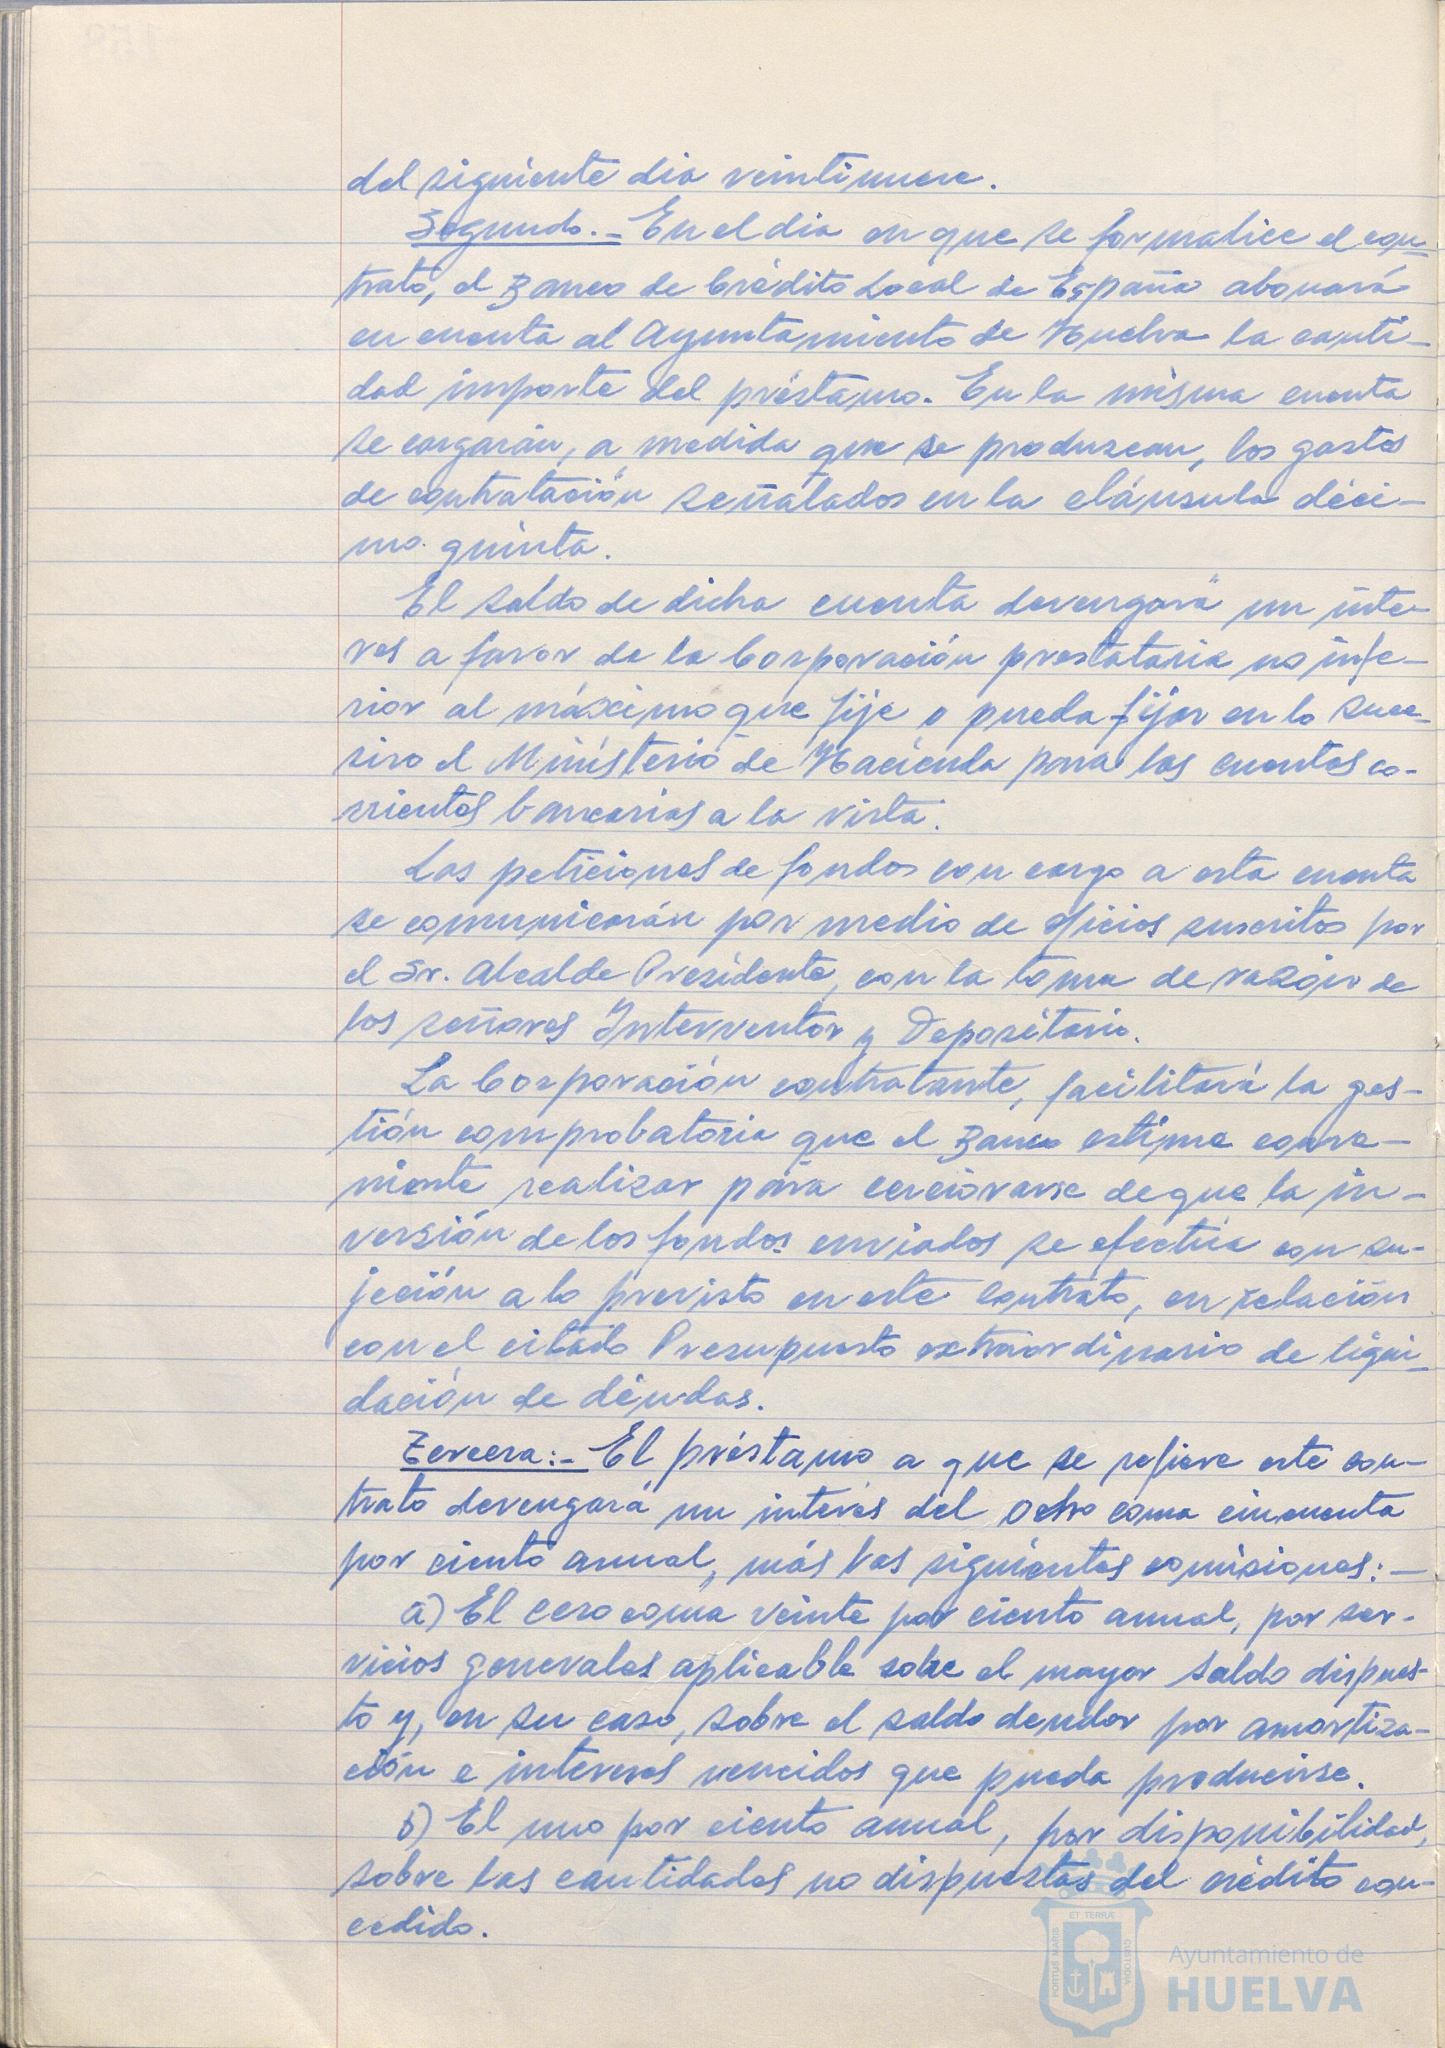 del siguiente dia veintinueve.
Segundo.- En el dia en que se formalice el con-
trato, el Banco de Crédito Local de España abonará
en cuenta al Ayuntamiento de Huelva la canti-
dad importe del préstamo. En la misma cuenta
se cargarán, a medida que se produzcan, los gastos
de contratación señalados en la cláusula déci-
mo quinta.
El saldo de dicha cuenta devengará un inte-
res a favor de la Corporación prestataria no infe-
rior al máximo que fije o pueda fijar en lo suce-
sivo el Ministerio de Hacienda para las cuentas co-
rrientes bancarias a la vista.
Las peticiones de fondos con cargo a esta cuenta
se comunicarán por medio de oficios suscritos por
el Sr. Alcalde Presidente, con la toma de razón de
los señores Interventor y Depositario.
La Corporación contratante, facilitará la ges-
tión comprobatoria que el Banco estime conve-
niente realizar para cerciorarse de que la in-
versión de los fondos enviados se efectúa con su-
jeción a lo previsto en este contrato, en relación
con el citado Presupuesto extraordinario de liqui-
dación de déudas.
Tercera:- El préstamo a que se refiere este con-
trato devengará un interés del ocho coma cincuenta
por ciento anual, más las siguientes comisiones:-
a) El cero coma veinte por ciento anual, por ser-
vicios generales aplicable sobre el mayor saldo dispues-
to y, en su caso, sobre el saldo deudor por amortiza-
ción e intereses vencidos que pueda producirse.
b) El uno por ciento anual, por disponibilidad,
sobre las cantidades no dispuestas del crédito con-
cedido.
PORTUS MARIS
ET TERRÆ
CUSTODIA
Ayuntamiento de
HUELVA